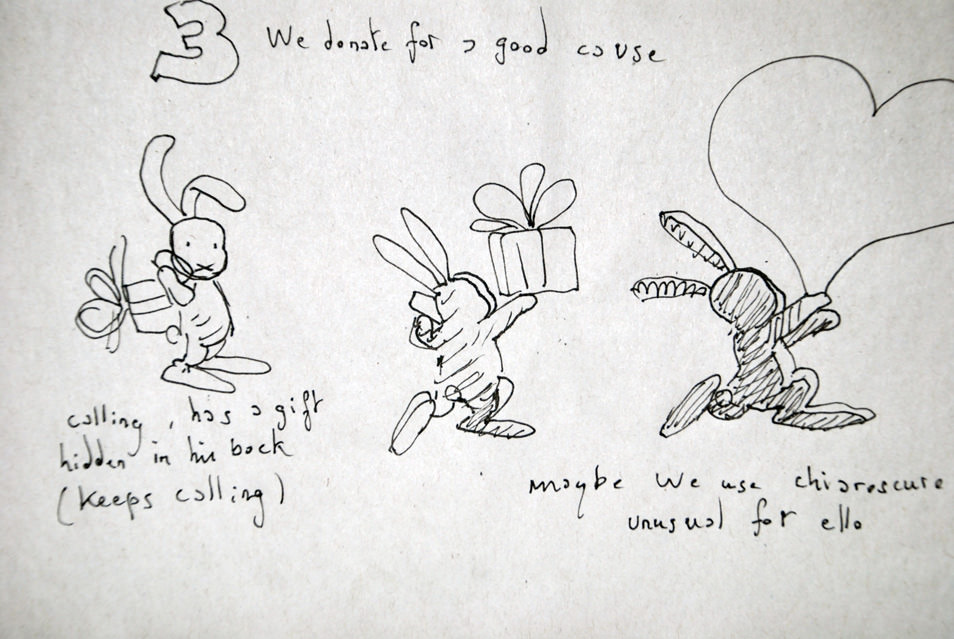 3 We donate for a good cause
calling, has a gift
hidden in his back
(Keeps calling)
maybe We use chiarescure
unusual for ello